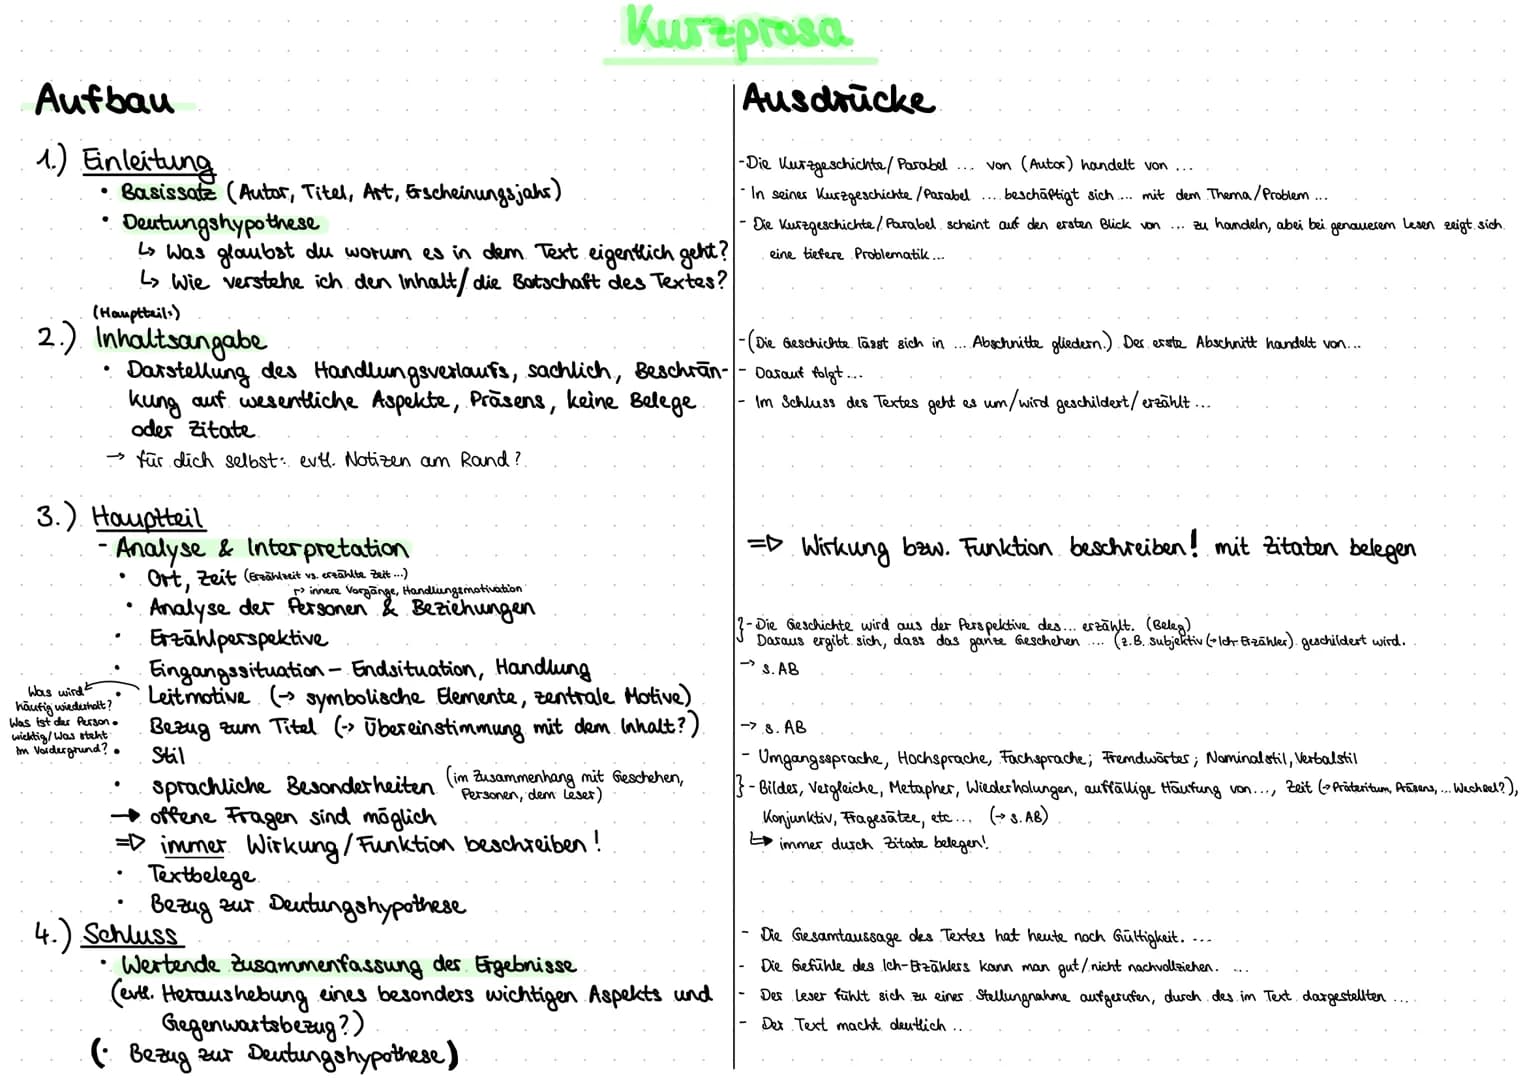 Kurzprosa
Aufbau
1.) Einleitung
• Basissatz (Autor, Titel, Art, Erscheinungsjahr)
• Deutungshypothese
↳ Was glaubst du worum es in dem Text eigentlich geht?
↳ Wie verstehe ich den Inhalt/ die Botschaft des Textes?
(Hauptteil:)
2.) Inhaltsangabe
• Darstellung des Handlungsverlaufs, sachlich, Beschrän-
kung auf wesentliche Aspekte, Präsens, keine Belege
oder Zitate
→ für dich selbst: evtl. Notizen am Rand?
3.) Hauptteil
- Analyse & Interpretation
• Ort, Zeit (Erzählzeit vs. erzählte Zeit ...)
↱ innere Vorgänge, Handlungsmotivation
• Analyse der Personen & Beziehungen
• Erzählperspektive
• Eingangssituation – Endsituation, Handlung
• Leitmotive (→ symbolische Elemente, zentrale Motive)
Was wird
häufig wiederholt?
Was ist der Person
wichtig/Was steht
im Vordergrund?
• Bezug zum Titel (→ Übereinstimmung mit dem Inhalt?)
• Stil
• sprachliche Besonderheiten (im Zusammenhang mit Geschehen,
Personen, dem Leser)
→ offene Fragen sind möglich
⇒ immer Wirkung/Funktion beschreiben!
• Textbelege
• Bezug zur Deutungshypothese
4.) Schluss
• Wertende Zusammenfassung der Ergebnisse
(evtl. Heraushebung eines besonders wichtigen Aspekts und
Gegenwartsbezug?)
(• Bezug zur Deutungshypothese)
Ausdrücke
- Die Kurzgeschichte/ Parabel ... von (Autor) handelt von ...
- In seiner Kurzgeschichte/Parabel .... beschäftigt sich ... mit dem Thema/Problem ...
- Die Kurzgeschichte/Parabel scheint auf den ersten Blick von ... zu handeln, abei bei genauerem Lesen zeigt sich
eine tiefere Problematik ...
- (Die Geschichte lässt sich in ... Abschnitte gliedern.) Der erste Abschnitt handelt von...
- Darauf folgt ...
- Im Schluss des Textes geht es um/wird geschildert/ erzählt ...
⇒ Wirkung bzw. Funktion beschreiben! mit Zitaten belegen
}- Die Geschichte wird aus der Perspektive des ... erzählt. (Beleg)
Daraus ergibt sich, dass das ganze Geschehen .... (z.B. subjektiv (→Ich-Erzähler) geschildert wird.
→ s. AB
→ s. AB
- Umgangssprache, Hochsprache, Fachsprache; Fremdwörter; Nominalstil, Verbalstil
}- Bilder, Vergleiche, Metapher, Wiederholungen, auffällige Häufung von..., Zeit (→Präteritum, Präsens, ... Wechsel?),
Konjunktiv, Fragesätze, etc... (→ s. AB)
↳ immer durch Zitate belegen!
- Die Gesamtaussage des Textes hat heute noch Gültigkeit. ...
- Die Gefühle des Ich-Erzählers kann man gut/nicht nachvollziehen. ...
- Der Leser fühlt sich zu einer Stellungnahme aufgerufen, durch des im Text dargestellten ...
- Der Text macht deutlich ..